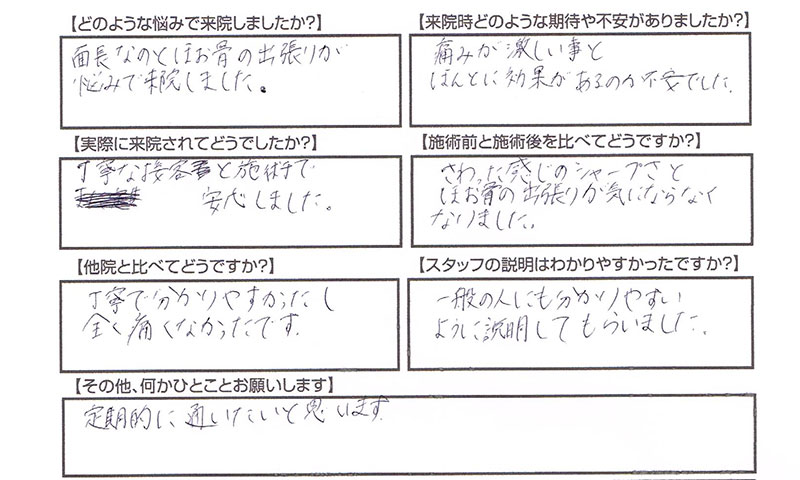 【どのような悩みで来院しましたか?】
面長なのとほお骨の出張りが
悩みで来院しました。
【来院時どのような期待や不安がありましたか?】
痛みが激しい事と
ほんとに効果があるのか不安でした。
【実際に来院されてどうでしたか?】
丁寧な接客と施術で
安心しました。
【施術前と施術後を比べてどうですか?】
さわった感じのシャープさと
ほお骨の出張りが気にならなく
なりました。
【他院と比べてどうですか?】
丁寧で分かりやすかったし
全く痛くなかったです。
【スタッフの説明はわかりやすかったですか?】
一般の人にも分かりやすい
ように説明してもらいました。
【その他、何かひとことお願いします】
定期的に通いたいと思います。